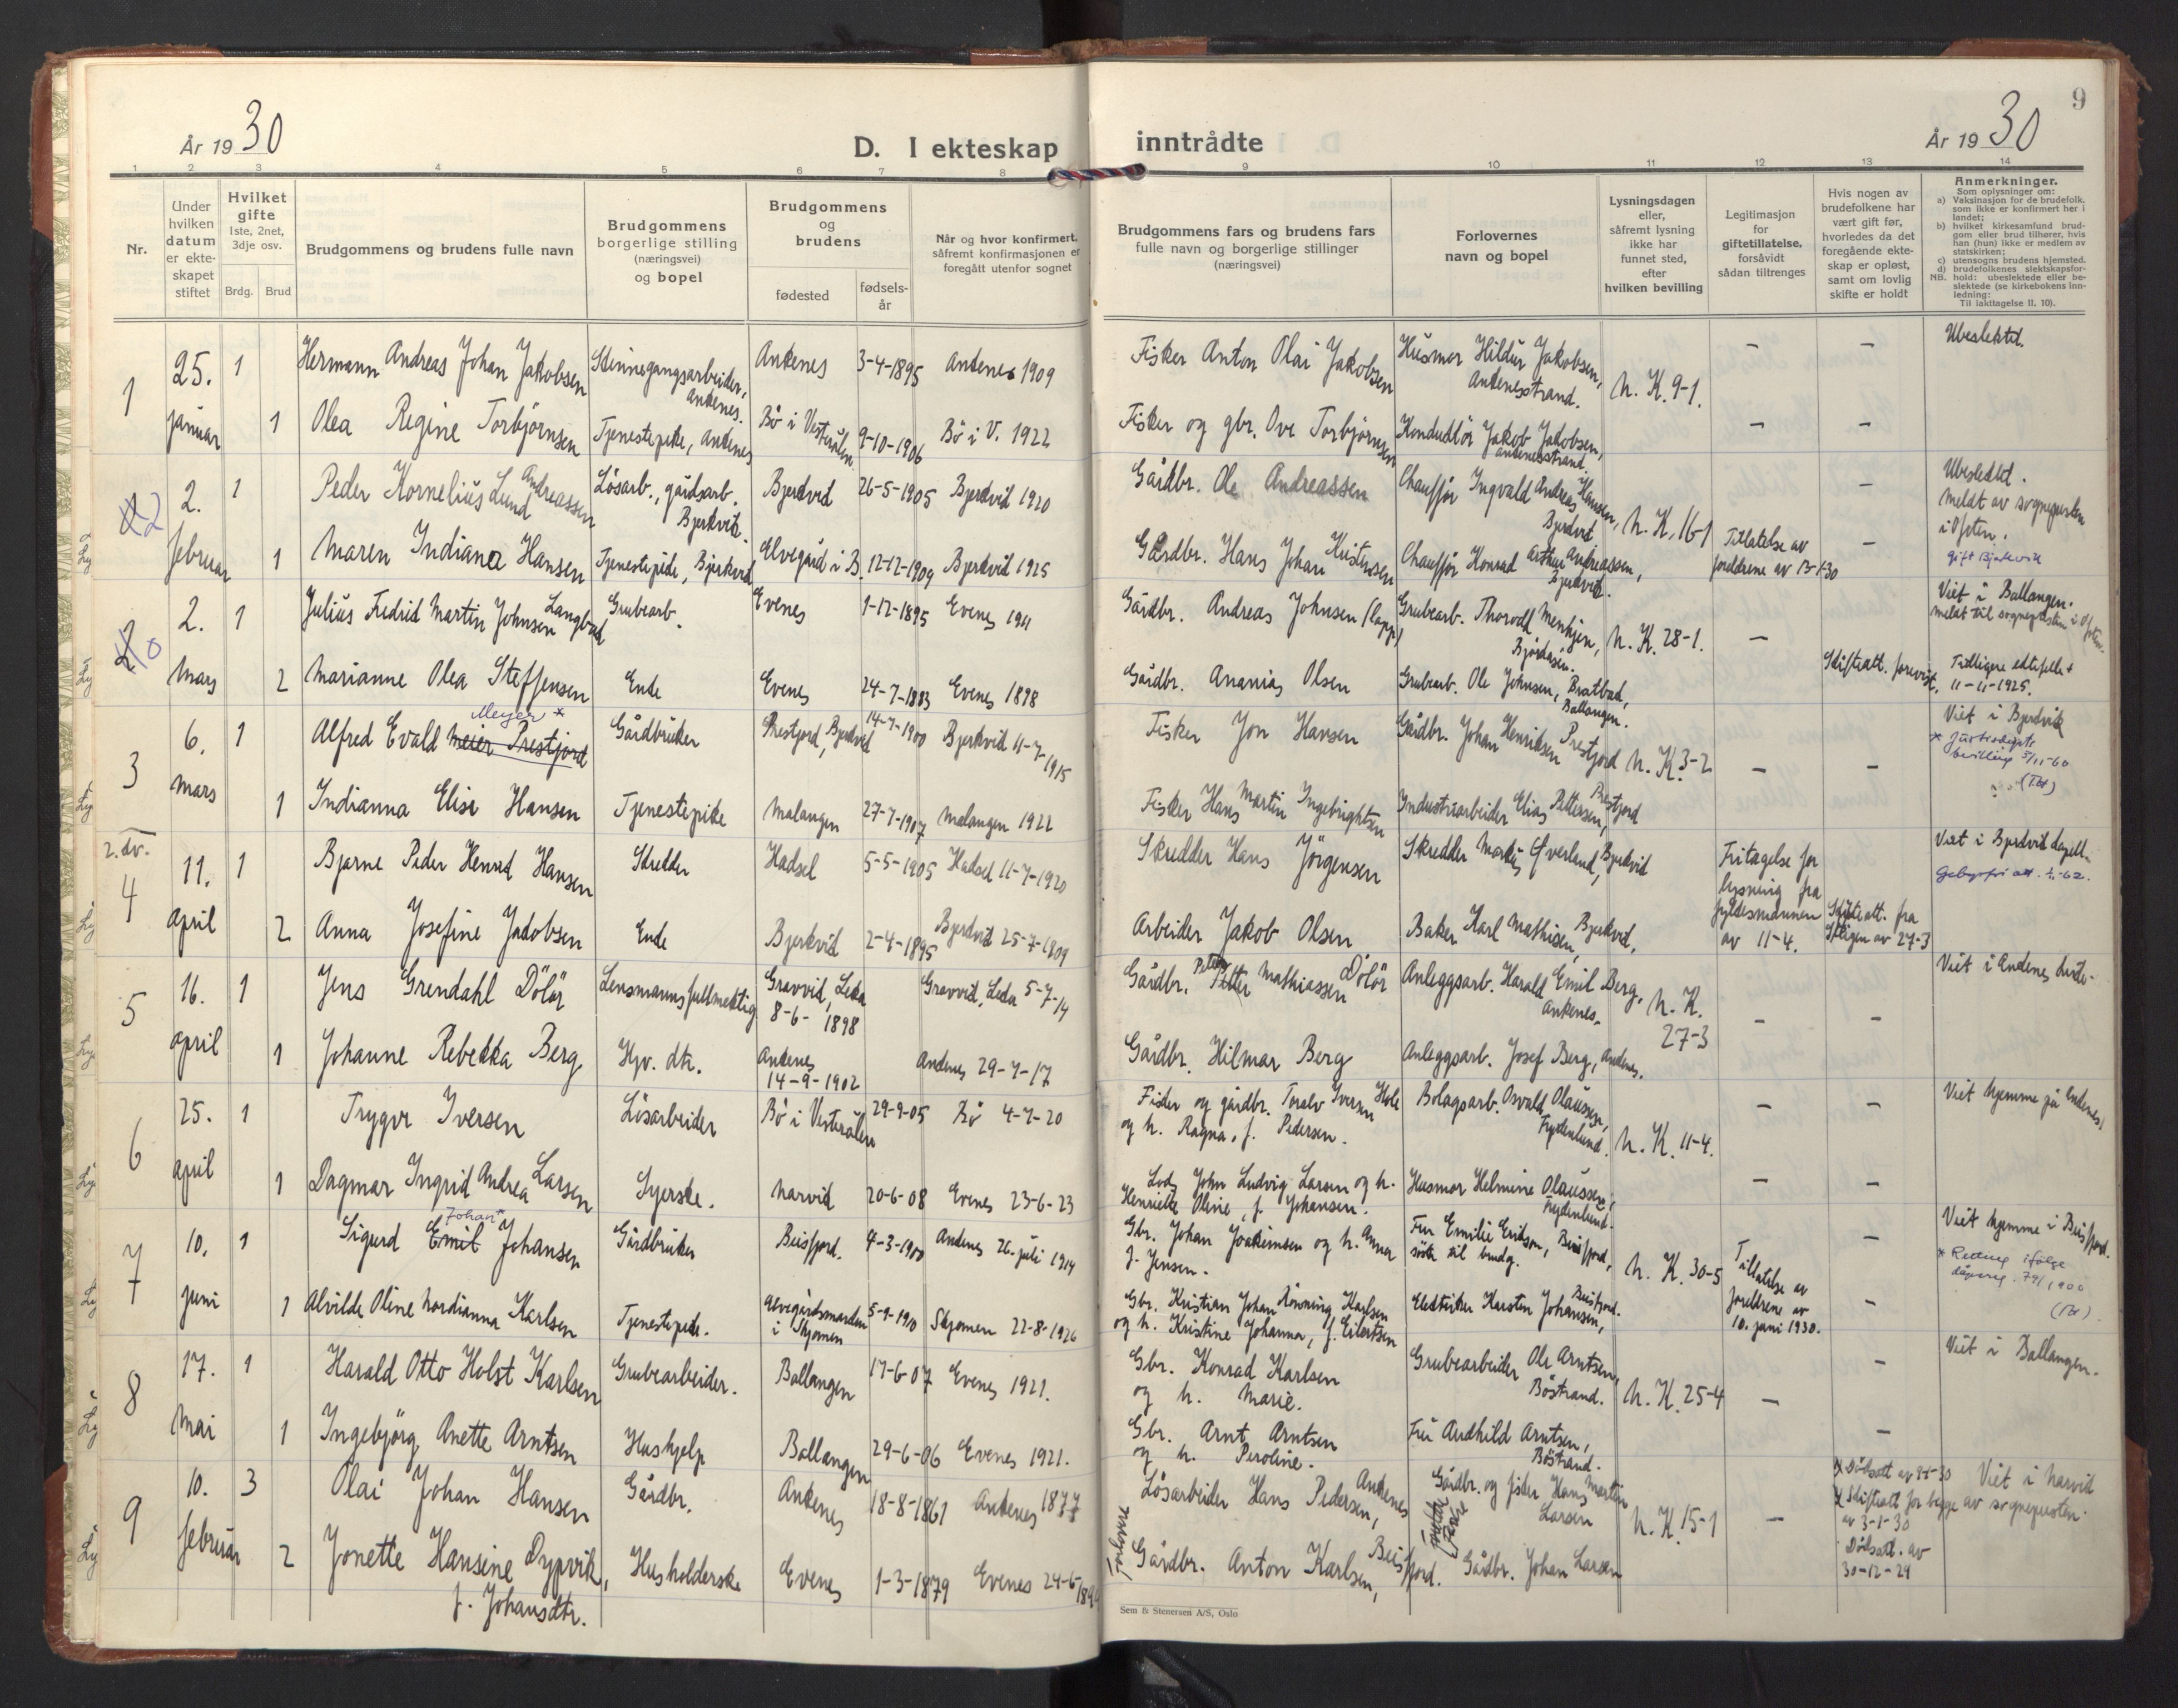 År 1930
D. I ekteskap
inntrådte
9
År 1930
1 2 3 4 5 6 7 8 9 10 11 12 13 14
Nr.
Under hvilken datum er ekte-skapet stiftet
Hvilket gifte 1ste, 2net, 3dje osv.
Brdg. Brud
Brudgommens og brudens fulle navn
Brudgommens borgerlige stilling (næringsvei) og bopel
Brudgommens og brudens
fødested
fødsels-år
Når og hvor konfirmert, såfremt konfirmasjonen er foregått utenfor sognet
Brudgommens fars og brudens fars fulle navn og borgerlige stillinger (næringsvei)
Forlovernes navn og bopel
Lysningsdagen eller, såfremt lysning ikke har funnet sted, efter hvilken bevilling
Legitimasjon for giftetillatelse, forsåvidt sådan tiltrenges
Hvis nogen av brudefolkene har vært gift før, hvorledes da det foregående ekte-skap er opløst, samt om lovlig skifte er holdt
Anmerkninger.
Som oplysninger om:
a) Vaksinasjon for de brudefolk, som ikke er konfirmert her i landet;
b) hvilket kirkesamfund brud-gom eller brud tilhører, hvis han (hun) ikke er medlem av statskirken;
c) utensogns brudens hjemsted.
d) brudefolkenes slektskapsfor-hold: ubeslektede eller be-slektede (se kirkebokens inn-ledning:
NB.
Til iakttagelse II. 10).
1 25. januar 1 Hermann Andreas Johan Jakobsen Stinnegangsarbeider, Ankenes. Ankenes 3-4-1895 Ankenes 1909 Fisker Anton Olai Jakobsen Husmor Hildur Jakobsen, Ankenesstrand. N. K. 9-1. – – Ubeslektet.
1 Olea Regine Torbjørnsen Tjenestepike, Ankenes Bö i Vesterålen 9-10-1906 Bö i V. 1922 Fisker og gbr. Ove Torbjørnsen Konduktör Jakob Jakobsen, Ankenesstrand. – –
2 2. februar 1 Peder Kornelius Lund Andreassen Lösarb., gårdsarb. Bjerkvik. Bjerkvik 26-5-1905 Bjerkvik 1920 Gårdbr. Ole Andreassen Chauffør Ingvald Andreas Hansen, Bjerkvik. N. K. 16-1 Ubeslektet. Meldt av sognepresten i Ofoten. gift Bjerkvik
1 Maren Indiana Hansen Tjenestepike, Bjerkvik Elvegård i B. 12-12-1909 Bjerkvik 1925 Gårdbr. Hans Johan Kristensen Chauffør Konrad Arthur Andreassen, Bjerkvik. Tillatelse av foreldrene av 13-1-30 –
10 2. mars 1 Julius Fredrik Martin Johnsen Langbad Grubearb. Evenes 1-12-1895 Evenes 1911 Gårdbr. Andreas Johnsen (lapp) Grubearb. Thorvald N. K. 28-1. – Viet i Ballangen. Meldt til sognepresten i Ofoten.
2 Marianne Olea Steffensen Enke Evenes 24-7-1883 Evenes 1898 Gårdbr. Ananias Olsen Grubearb. Ole Johnsen, Ballangen. Skifteatt. forevist. Tidligere ektefelle † 11-11-1925.
3 6. mars 1 Alfred Evald Meier Prestjord Meyer * Gårdbruker Prestjord, Bjerkvik 14-7-1900 Bjerkvik 11-7-1915 Fisker Jon Hansen Gårdbr. Johan Henriksen Prestjord N. K. 3-2 – – Viet i Bjerkvik
1 Indianna Elise Hansen Tjenestepike Malangen 27-7-1907 Malangen 1922 Fisker Hans Martin Ingebrigtsen Industriarbeider Elias Pettersen, Prestjord
2. dv.
4 11. april 1 Bjarne Peder Henrik Hansen Skredder Hadsel 5-5-1905 Hadsel 11-7-1920 Skredder Hans Jörgensen Skredder Markus Överland, Bjerkvik Fritagelse for lysning fra fylkesmannen av 11-4. Viet i Bjerkvik kapell.
2 Anna Josefine Jakobsen Enke Bjerkvik 2-4-1895 Bjerkvik 25-7-1909 Arbeider Jakob Olsen Baker Karl Mathisen, Bjerkvik, Skifteatt. fra av 27-3
5 16. april 1 Jens Grendahl Dölör Lensmannsfullmektig Gravvik, Leka 8-6-1898 Gravvik, Leka 5-7-14 Gårdbr. Petter Mathiassen Dölör Anleggsarb. Harald Emil Berg, Ankenes. N. K. 27-3 – – Viet i Ankenes kirke.
1 Johanne Rebekka Berg Hjv. dtr. Ankenes 14-9-1902 Ankenes 29-7-17 Gårdbr. Hilmar Berg Anleggsarb. Josef Berg, Ankenes.
6 25. april 1 Trygve Iversen Lösarbeider Bö i Vesterålen 29-9-05 Bö 4-7-20 Fisker og gårdbr. Toralv Iversen Hole og h. Ragna, f. Pedersen. Bolagsarb. Osvald Olaussen, Frydenlund. N. K. 11-4. – – Viet hjemme på Ankenes.
1 Dagmar Ingrid Andrea Larsen Syerske. Narvik 20-6-08 Evenes 23-6-23 John Ludvig Larsen og h. Henriette Oline, f. Johansen. Husmor Helmine Olaussen, Frydenlund. – –
7 10. juni 1 Sigurd Emil Johansen Johan* Gårdbruker Beisfjord. 4-3-1900 Ankenes 26. juli 1914 Gbr. Johan Joakimsen og h. Anna f. Jensen. Fru Emilie Erikson, Beisfjord, N. K. 30-5 Tillatelse av foreldrene av 10. juni 1930. – Viet hjemme i Beisfjord. * Retting ifølge
1 Alvilde Oline Nordianna Karlsen Tjenestepike. Elvegårdsmarken i Skjomen 5-9-1910 Skjomen 22-8-1926 Gbr. Kristian Johan Rönning Karlsen og h. Kristine Johanna, f. Eilertsen Elektriker Karsten Johansen, Beisfjord. –
8 17. mai 1 Harald Otto Holst Karlsen Grubearbeider. Ballangen 17-6-07 Evenes 1921. Gbr. Konrad Karlsen og h. Marie. Grubearbeider Ole Arntsen, Böstrand. N. K. 25-4 – – Viet i Ballangen.
1 Ingebjörg Anette Arntsen Hushjelp Ballangen 29-6-06 Evenes 1921. Gbr. Arnt Arntsen og h. Peroline. Fru Audhild Arntsen, Böstrand. –
9 10. februar 3 Olai Johan Hansen Gårdbr. Ankenes 18-8-1861 Ankenes 1877 Lösarbeider Hans Pedersen, Ankenes Gårdbr. og fisker Hans Martin Larsen N. K. 15-1 – Skifteatt for begge av 3-1-30 Viet i Narvik av sognepresten.
2 Jonette Hansine Dypvik, f. Johansdtr. Husholderske Evenes 1-3-1879 Evenes Gårdbr. Anton Karlsen, Beisfjord. Gårdbr. Johan Larsen Dödsatt. av 30-12-29
Forlovere
Sem & Stenersen A/S, Oslo